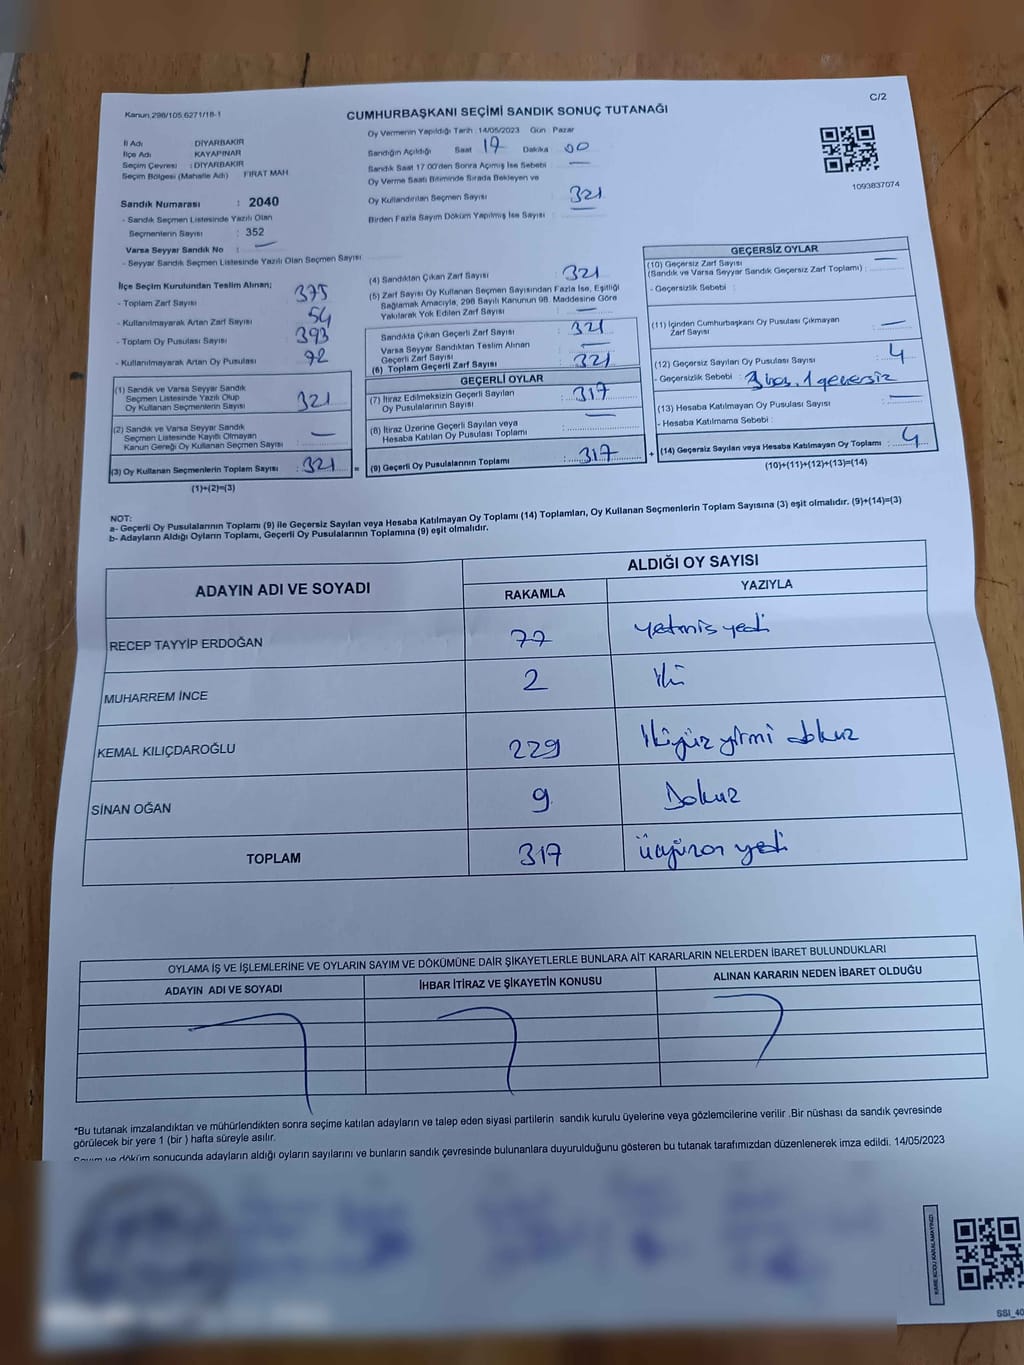 C/2
Kanun.298/105,6271/18-1
CUMHURBAŞKANI SEÇİMİ SANDIK SONUÇ TUTANAĞI
İl Adı DİYARBAKIR
İlçe Adı KAYAPINAR
Seçim Çevresi : DİYARBAKIR
Seçim Bölgesi (Mahalle Adı) FIRAT MAH
Sandık Numarası : 2040
- Sandık Seçmen Listesinde Yazılı Olan
Seçmenlerin Sayısı : 352
Varsa Seyyar Sandık No : —
- Seyyar Sandık Seçmen Listesinde Yazılı Olan Seçmen Sayısı
Oy Vermenin Yapıldığı Tarih : 14/05/2023 Gün Pazar
Sandığın Açıldığı Saat 17 Dakika 00
Sandık Saat 17.00'den Sonra Açımış İse Sebebi —
Oy Verme Saati Bitiminde Sırada Bekleyen ve
Oy Kullandırılan Seçmen Sayısı : 321
Birden Fazla Sayım Döküm Yapılmış İse Sayısı
1093837074
İlçe Seçim Kurulundan Teslim Alınan;
- Toplam Zarf Sayısı 375
- Kullanılmayarak Artan Zarf Sayısı 54
- Toplam Oy Pusulası Sayısı 393
- Kullanılmayarak Artan Oy Pusulası 72
(1) Sandık ve Varsa Seyyar Sandık
Seçmen Listesinde Yazılı Olup
Oy Kullanan Seçmenlerin Sayısı 321
(2) Sandık ve Varsa Seyyar Sandık
Seçmen Listesinde Kayıtlı Olmayan
Kanun Gereği Oy Kullanan Seçmen Sayısı : —
(3) Oy Kullanan Seçmenlerin Toplam Sayısı : 321 =
(1)+(2)=(3)
(4) Sandıktan Çıkan Zarf Sayısı : 321
(5) Zarf Sayısı Oy Kullanan Seçmen Sayısından Fazla İse, Eşitliği
Sağlamak Amacıyla, 298 Sayılı Kanunun 98. Maddesine Göre
Yakılarak Yok Edilen Zarf Sayısı : —
Sandıkta Çıkan Geçerli Zarf Sayısı : 321
Varsa Seyyar Sandıktan Teslim Alınan
Geçerli Zarf Sayısı : —
(6) Toplam Geçerli Zarf Sayısı : 321
GEÇERLİ OYLAR
(7) İtiraz Edilmeksizin Geçerli Sayılan
Oy Pusulalarının Sayısı : 317
(8) İtiraz Üzerine Geçerli Sayılan veya
Hesaba Katılan Oy Pusulası Toplamı : —
(9) Geçerli Oy Pusulalarının Toplamı : 317 +
GEÇERSİZ OYLAR
(10) Geçersiz Zarf Sayısı
(Sandık ve Varsa Seyyar Sandık Geçersiz Zarf Toplamı) : —
- Geçersizlik Sebebi :
(11) İçinden Cumhurbaşkanı Oy Pusulası Çıkmayan
Zarf Sayısı : —
(12) Geçersiz Sayılan Oy Pusulası Sayısı : 4
- Geçersizlik Sebebi : 3 boş, 1 geçersiz
(13) Hesaba Katılmayan Oy Pusulası Sayısı : —
- Hesaba Katılmama Sebebi :
(14) Geçersiz Sayılan veya Hesaba Katılmayan Oy Toplamı : 4
(10)+(11)+(12)+(13)=(14)
NOT:
a- Geçerli Oy Pusulalarının Toplamı (9) ile Geçersiz Sayılan veya Hesaba Katılmayan Oy Toplamı (14) Toplamları, Oy Kullanan Seçmenlerin Toplam Sayısına (3) eşit olmalıdır. (9)+(14)=(3)
b- Adayların Aldığı Oyların Toplamı, Geçerli Oy Pusulalarının Toplamına (9) eşit olmalıdır.
ADAYIN ADI VE SOYADI ALDIĞI OY SAYISI
RAKAMLA YAZIYLA
RECEP TAYYİP ERDOĞAN 77 yetmiş yedi
MUHARREM İNCE 2 iki
KEMAL KILIÇDAROĞLU 229 İkiyüz yirmi dokuz
SİNAN OĞAN 9 Dokuz
TOPLAM 317 üçyüzon yedi
OYLAMA İŞ VE İŞLEMLERİNE VE OYLARIN SAYIM VE DÖKÜMÜNE DAİR ŞİKAYETLERLE BUNLARA AİT KARARLARIN NELERDEN İBARET BULUNDUKLARI
ADAYIN ADI VE SOYADI İHBAR İTİRAZ VE ŞİKAYETİN KONUSU ALINAN KARARIN NEDEN İBARET OLDUĞU
*Bu tutanak imzalandıktan ve mühürlendikten sonra seçime katılan adayların ve talep eden siyasi partilerin sandık kurulu üyelerine veya gözlemcilerine verilir .Bir nüshası da sandık çevresinde
görülecek bir yere 1 (bir ) hafta süreyle asılır.
Sayım ve döküm sonucunda adayların aldığı oyların sayılarını ve bunların sandık çevresinde bulunanlara duyurulduğunu gösteren bu tutanak tarafımızdan düzenlenerek imza edildi. 14/05/2023
KARE KODU KARALAMAYINIZ!
SSI_40